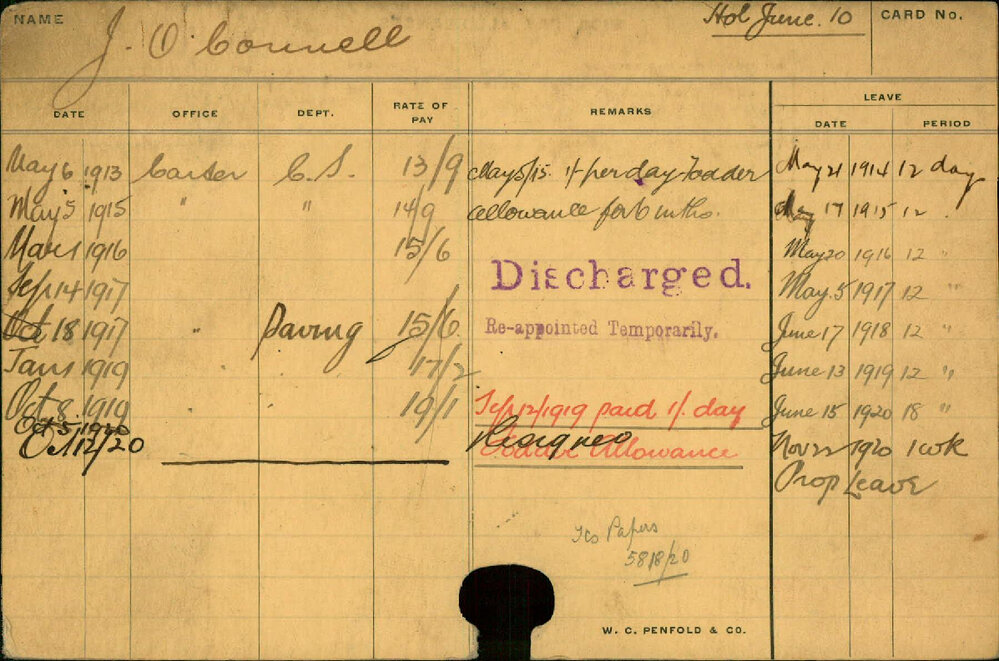 NAME J. O'Connell Hol June. 10 CARD No.
DATE OFFICE DEPT. RATE OF PAY REMARKS LEAVE
DATE PERIOD
May 6 1913 Carter C.S. 13/9 May 5/15 1/- per day Fodder May 21 1914 12 days
May 5 1915 " " 14/9 allowance for 6 mths. May 17 1915 12 "
Mar 1 1916 15/6 May 20 1916 12 "
Discharged.
Sep 14 1917 May. 5 1917 12 "
Oct 18 1917 " Paving 15/6 Re-appointed Temporarily. June 17 1918 12 "
Jan 1 1919 17/2 June 13 1919 12 "
Oct 8 1919 19/1 Sep 12/1919 paid 1/- day June 15 1920 18 "
Oct 5 1920
Oct 12/20 Resigned Fodder Allowance Nov 22 1920 1 wk
Prop Leave
Papers
5818/20
W. C. PENFOLD & CO.